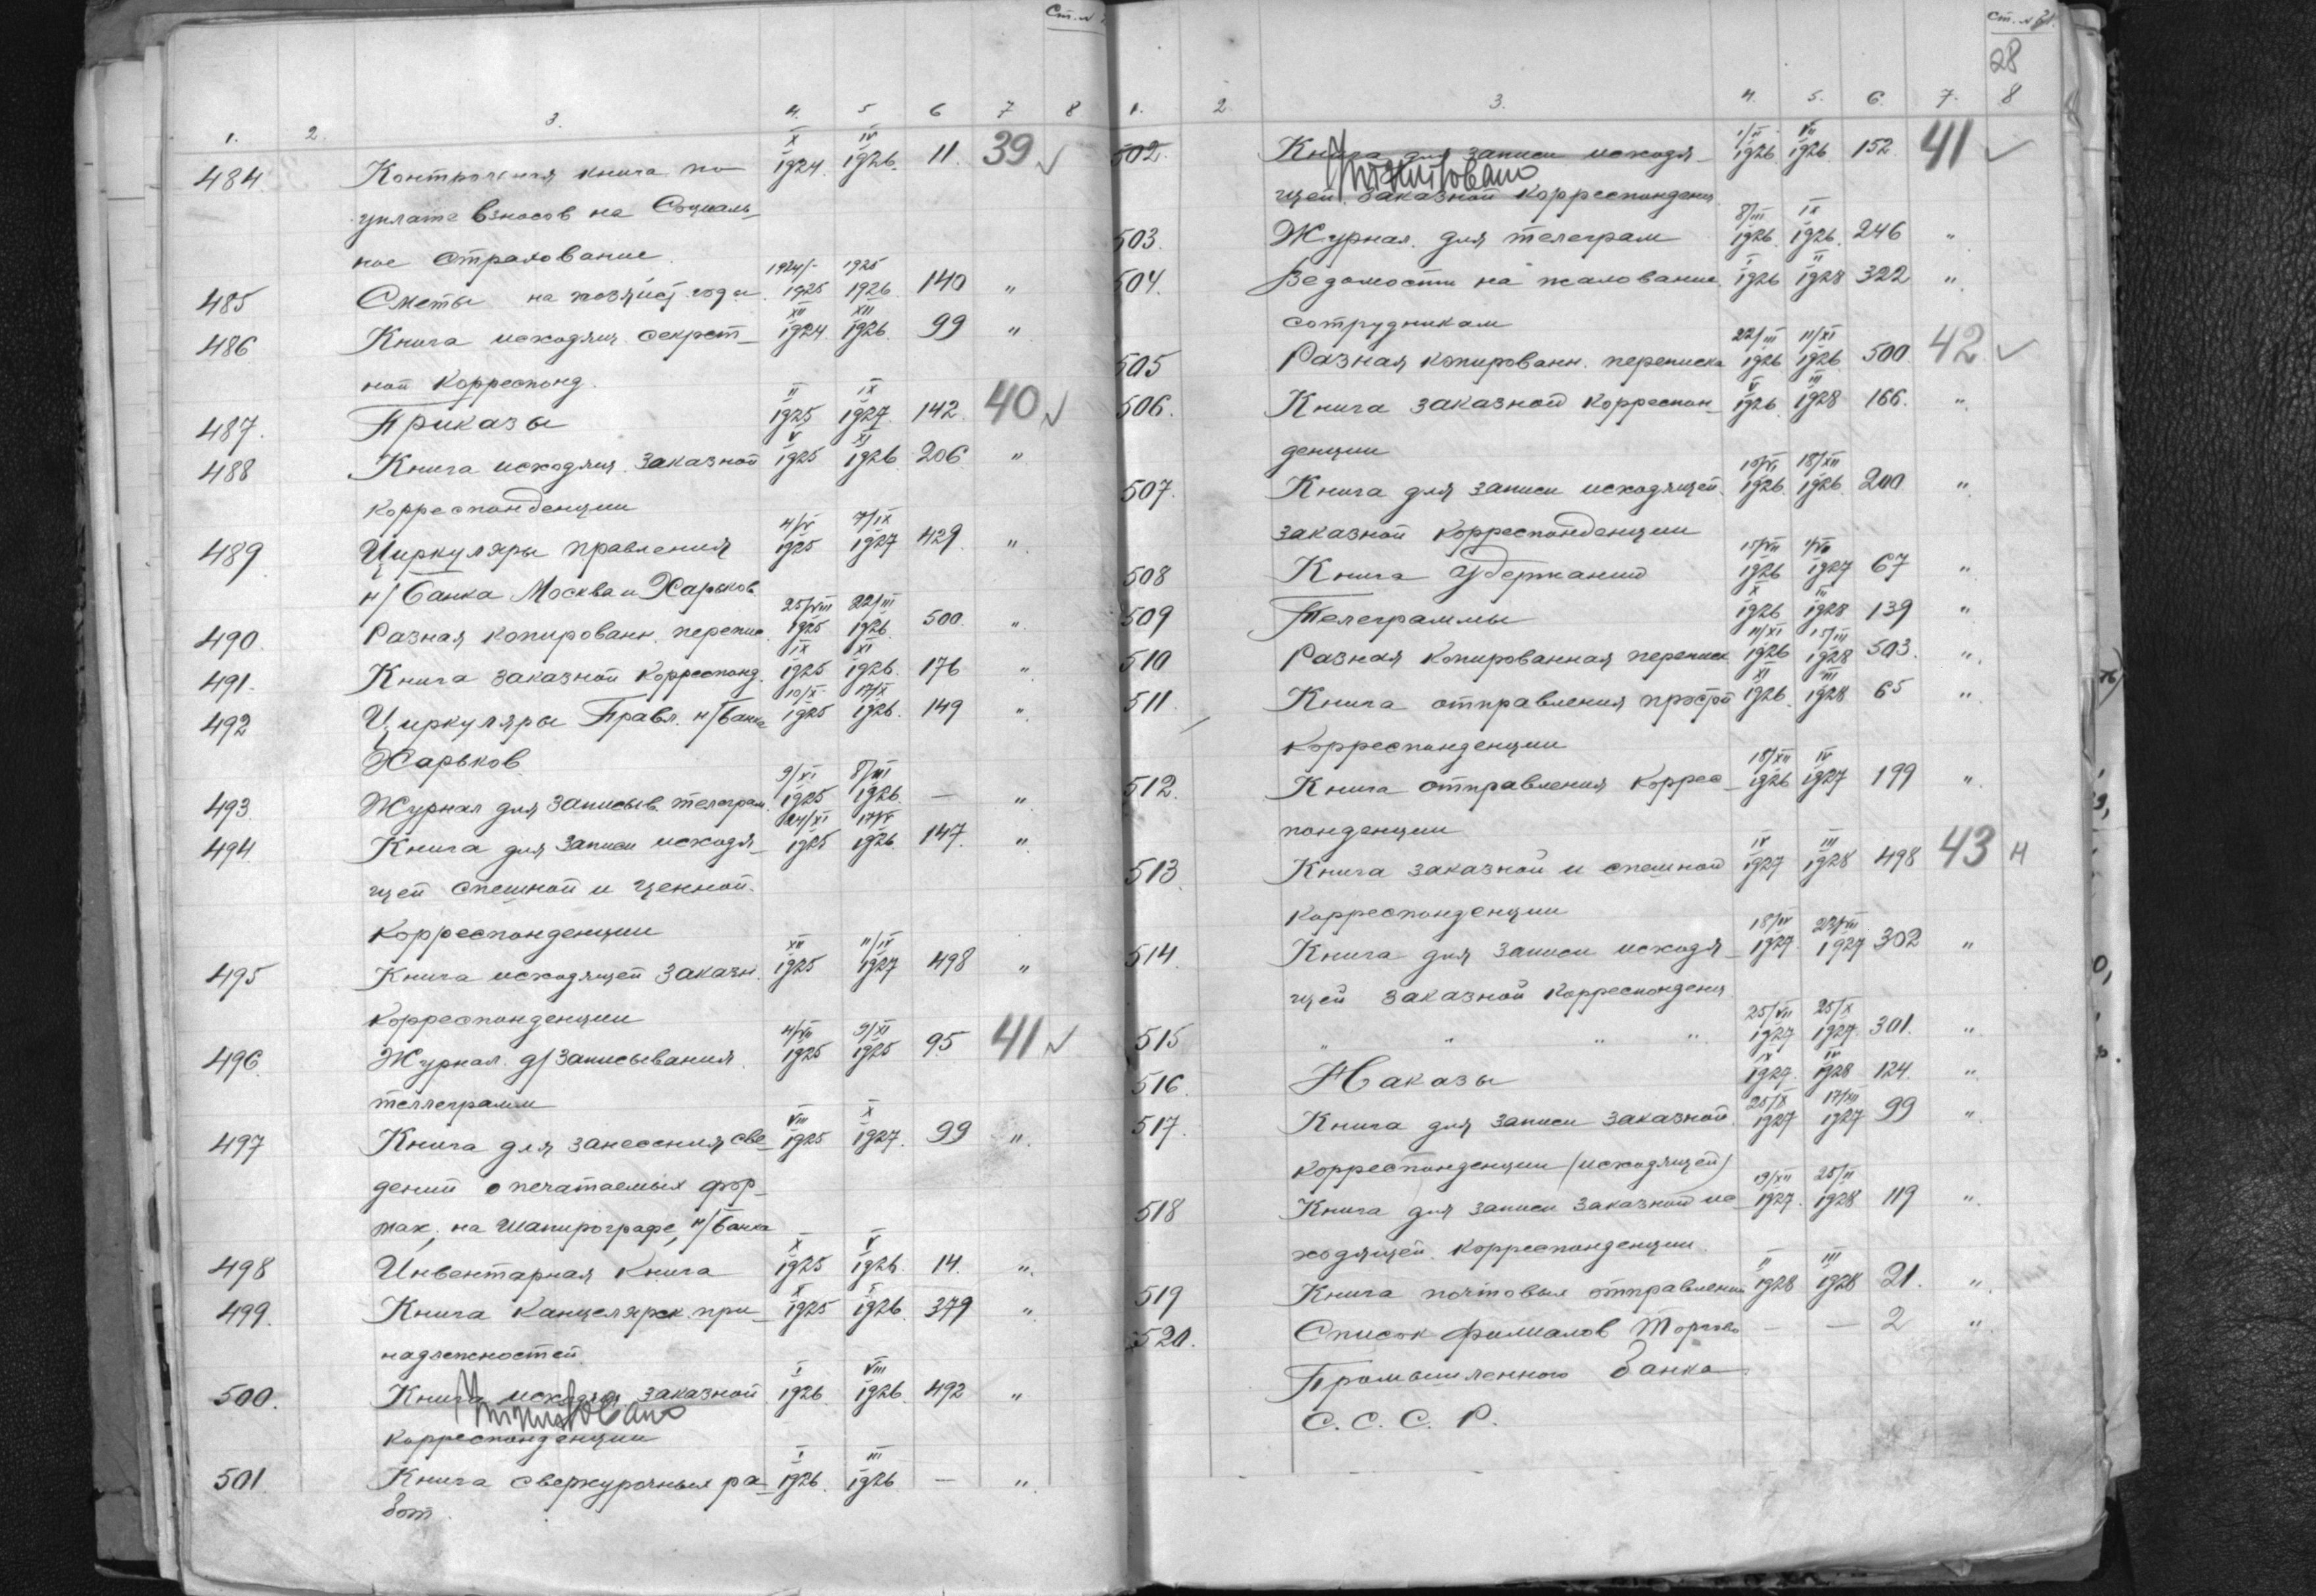 Ст. №
1. 2. 3. 4. 5 6 7 8
484 Контрольная книга по X 1924. IV 1926. 11. 39 ✓
уплате взносов на Социаль-
ное страхование.
485 Сметы на хозяйст. годы 1924/-1925 1925 1926. 140 "
486 Книга исходящ. секрет- XII 1924. XII 1926. 99 "
ной корреспонд.
487. Приказы II 1925 IX 1927. 142. 40 ✓
488 Книга исходящ. заказной V 1925 XI 1926. 206 "
корреспонденции
489 Циркуляры правления 4/V 1925 7/IX 1927 429. "
н/банка Москва и Харьков
490. Разная копированн. перепис. 25/VIII 1925 22/III 1926. 500. "
491. Книга заказной корреспонд. IX 1925 XI 1926. 176 "
492 Циркуляры Правл. н/банка 10/X 1925 17/X 1926. 149 "
Харьков
493 Журнал для записыв. телеграм. 9/XI 1925 8/III 1926. — "
494. Книга для записи исходя- 24/XI 1925 17/V 1926. 147. "
щей спешной и ценной.
корреспонденции
495 Книга исходящей заказн. XII 1925 11/IV 1927 498 "
корреспонденции
496 Журнал. д/записывания 4/VI 1925 9/XI 1925 95 41 ✓
теллеграмм
497 Книга для занесения све- VIII 1925 X 1927. 99 "
дений о печатаемых фор-
мах, на шапирографе, н/банка
498 Инвентарная книга X 1925 V 1926. 14. "
499. Книга канцелярск. при- X 1925 X 1926. 379 "
надлежностей.
500. Книга исходящ. заказной I 1926. VIII 1926. 492 "
корреспонденции
501. Книга сверхурочных ра- I 1926. III 1926 — "
бот.
Ст. №
28
1. 2. 3. 4. 5. 6. 7. 8
502. Книга для записи исходя- 1926. VII 1926. 152 41 ✓
щей заказной корреспонденц.
503. Журнал. для телеграм 8/III 1926. IX 1926. 246 "
504. Ведомости на жалование I 1926 II 1928 322 "
сотрудникам
505 Разная копированн. переписка 22/III 1926 11/XI 1926. 500 42 ✓
506. Книга заказной корреспон- V 1926. III 1928 166. "
денции
507. Книга для записи исходящей 1926. 18/XII 1926. 200 "
заказной корреспонденции
508 Книга удержаний 15/VII 1926 1927 67 "
509 Телеграммы X 1926 III 1928 139 "
510 Разная копированная переписк. 11/XI 1926 15/III 1928 503. "
511. Книга отправления простой XI 1926. III 1928 65 "
корреспонденции
512. Книга отправления коррес- 18/XII 1926 IV 1927 199 "
понденции
513. Книга заказной и спешной IV 1927 III 1928 498 43 н
корреспонденции
514. Книга для записи исходя- 18/IV 1927. 23/VII 1927 302 "
щей заказной корреспонденц.
515 " " " " 25/VII 1927 25/X 1927. 301. "
516. Наказы IX 1927. IV 1928 124. "
517. Книга для записи заказной 25/X 1927 17/XII 1927 99 "
корреспонденции (исходящей)
518 Книга для записи заказной ис- 19/XII 1927. 25/II 1928 119 "
ходящей корреспонденции.
519 Книга почтовых отправлений II 1928 III 1928 21. "
520. Список филиалов Торгово — — 2 "
Промышленного банка
С. С. С. Р.